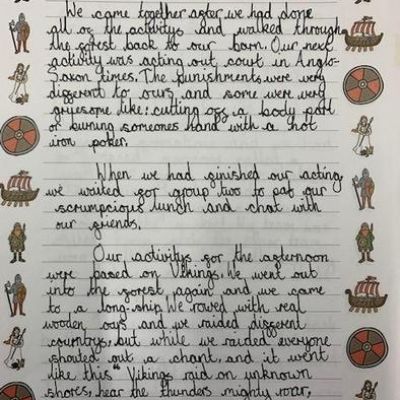 We came together after we had done
all of the activitys and walked through
the forest back to our barn. Our next
activity was acting out court in Anglo-
Saxon times. The punishments were very
different to ours and some were very
gruesome like: cutting off a body part
or burning someones hand with a hot
iron poker.
When we had finished our acting
we waited for group two to eat our
scrumpcious lunch and chat with
our friends.
Our activitys for the afternoon
were based on Vikings. We went out
into the forest again and we came
to a long-ship. We rowed with real
wooden ours and we raided different
countrys, but while we raided everyone
shouted out a chant, and it went
like this "Vikings raid on unknown
shores, hear the thunders mighty roar,